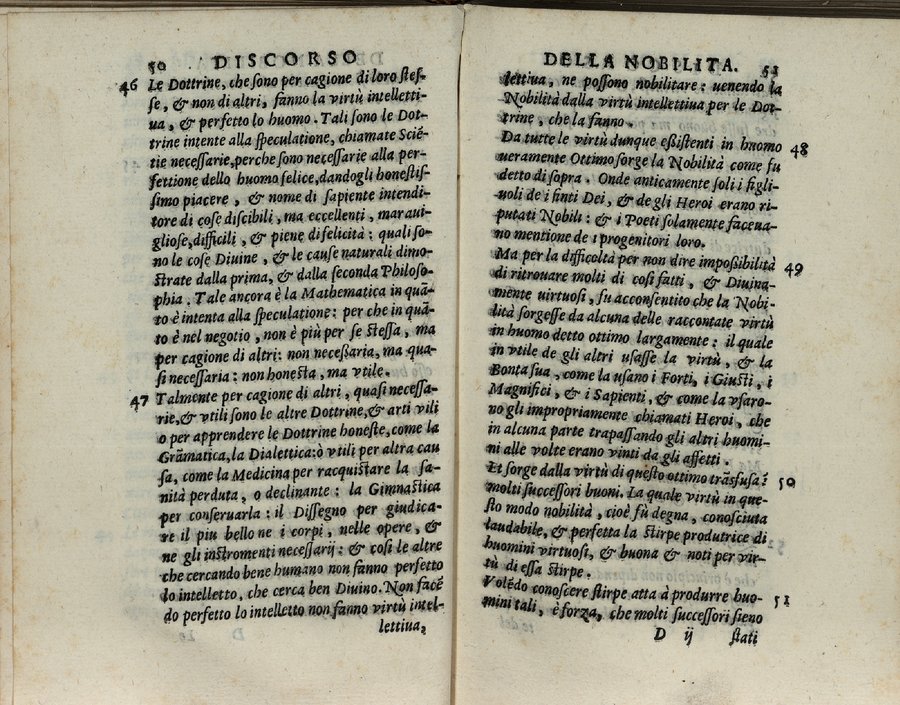 50 DISCORSO
46 Le Dottrine, che ſono per cagione di loro steſ-
ſe, & non di altri, fanno la virtù intelletti-
ua, & perfetto lo huomo. Tali ſono le Dot-
trine intente alla ſpeculatione, chiamate Sciē-
tie neceſſarie, perche ſono neceſſarie alla per-
fettione dello huomo felice, dandogli honestiſ-
ſimo piacere, & nome di ſapiente intendi-
tore di coſe diſcibili, ma eccellenti, maraui-
glioſe, difficili, & piene di felicità: quali ſo-
no le coſe Diuine, & le cauſe naturali dimo-
strate dalla prima, & dalla ſeconda Philoſo-
phia. Tale ancora è la Mathematica in quā-
to è intenta alla ſpeculatione: per che in quā-
to è nel negotio, non è più per ſe steſſa, ma
per cagione di altri: non neceßaria, ma qua-
ſi neceſſaria: non honesta, ma vtile.
47 Talmente per cagione di altri, quaſi neceſſa-
rie, & vtili ſono le altre Dottrine, & arti vili
o per apprendere le Dottrine honeste, come la
Grāmatica, la Dialettica: ò vtili per altra cau
ſa, come la Medicina per racquistare la ſa-
nità perduta, o declinante: la Gimnastica
per conſeruarla: il Diſſegno per giudica-
re il piu bello ne i corpi, nelle opere, &
ne gli instromenti neceſſarij: & coſi le altre
che cercando bene humano non fanno perfetto
lo intelletto, che cerca ben Diuino. Non facē
do perfetto lo intelletto non fanno virtù intel-
lettiua,
DELLA NOBILITA. 51
lettiua, ne poſſono nobilitare: uenendo la
Nobilità dalla virtù intellettiua per le Dot-
trine, che la fanno.
Da tutte le virtù dunque eſiſtenti in huomo 48
ueramente Ottimo ſorge la Nobilità come fu
detto di ſopra. Onde anticamente ſoli i figli-
uoli de i finti Dei, & de gli Heroi erano ri-
putati Nobili: & i Poeti ſolamente faceua-
no mentione de i progenitori loro.
Ma per la difficoltà per non dire impoßibilità 49
di ritrouare molti di coſi fatti, & Diuina-
mente uirtuoſi, fu acconſentito che la Nobi-
lità ſorgeſſe da alcuna delle raccontate virtù
in huomo detto ottimo largamente: il quale
in vtile de gli altri uſaſſe la virtù, & la
Bonta ſua, come la uſano i Forti, i Giusti, i
Magnifici, & i Sapienti, & come la vſaro-
no gli impropriamente chiamati Heroi, che
in alcuna parte trapaſſando gli altri huomi-
ni alle volte erano vinti da gli affetti.
Et ſorge dalla virtù di questo ottimo trāsfuſa ī 50
molti ſucceſſori buoni. La quale virtù in que-
sto modo nobilità, cioè fù degna, conoſciuta
laudabile, & perfetta la stirpe produtrice di
huomini virtuoſi, & buona & noti per vir-
tù di eſſa stirpe.
Volēdo conoſcere stirpe atta à produrre huo- 51
mini tali, è forza, che molti ſucceſſori ſieno
D ij stati